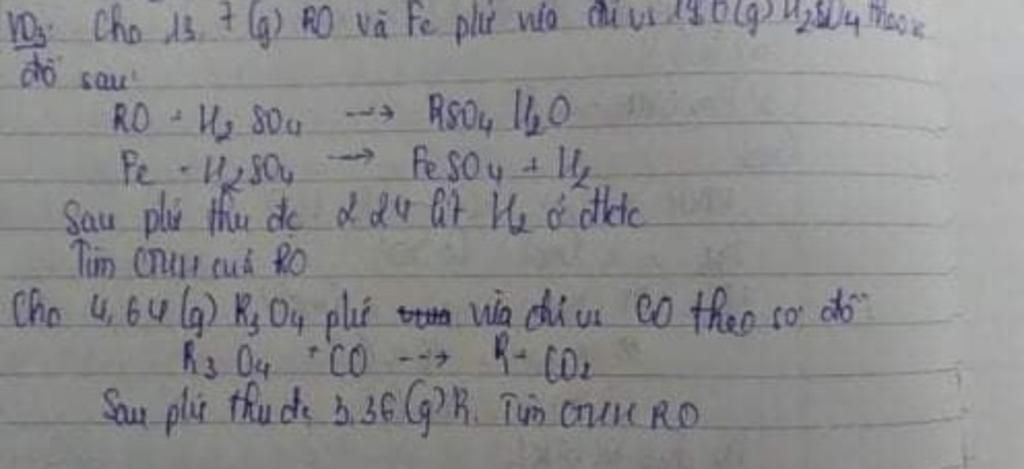 VD3: Cho 13,7 (g) RO và Fe pứ vừa đủ vs (g) H2SO4 theo sơ
đồ sau
RO + H2SO4 --→ RSO4 H2O
Fe + H2SO4 --→ FeSO4 + H2
Sau pứ thu đc 2 24 lít H2 ở đktc
Tìm CTHH của RO
Cho 4,64 (g) R3O4 pứ vừa đủ vs CO theo sơ đồ
R3O4 + CO --→ R + CO2
Sau pứ thu đc 3,36 (g) R. Tìm CTHH RO